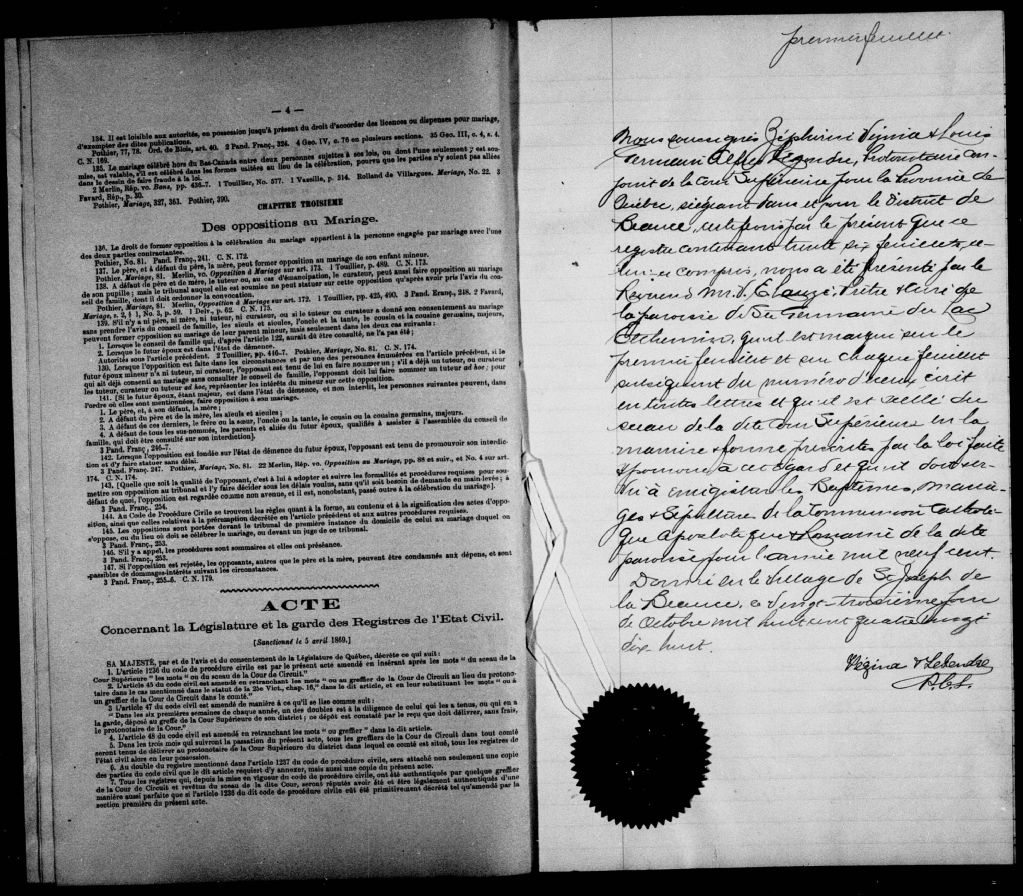 — 4 —
134. Il est loisible aux autorités, en possession jusqu'à présent du droit d'accorder des licences ou dispenses pour mariage,
d'exempter des dites publications.
Pothier, 77, 78. Ord. de Blois, art. 40. 2 Pand. Franç., 324. 4 Geo. IV, c. 76 en plusieurs sections. 35 Geo. III, c. 4, s. 4.
C. N. 169.
135. Le mariage célébré hors du Bas-Canada entre deux personnes sujettes à ses lois, ou dont l'une seulement y est sou-
mise, est valable, s'il est célébré dans les formes usitées au lieu de la célébration, pourvu que les parties n'y soient pas allées
dans le dessein de faire fraude à la loi.
2 Merlin, Rép. vo. Bans, pp. 436-7. 1 Touillier, No. 577. 1 Vazeille, p. 514. Rolland de Villargues. Mariage, No. 22. 3
Favard, Rép., p. 30.
Pothier, Mariage, 327, 353. Pothier, 390.
CHAPITRE TROISIÈME
Des oppositions au Mariage.
136. Le droit de former opposition à la célébration du mariage appartient à la personne engagée par mariage avec l'une
des deux parties contractantes.
Pothier, No. 81. Pand. Franç., 241. C. N. 172.
137. Le père, et à défaut du père, la mère, peut former opposition au mariage de son enfant mineur.
Pothier, Mariage, 81. Merlin, vo. Opposition à Mariage sur art. 173. 1 Touillier, p. 489. C. N. 173.
138. A défaut de père et de mère, le tuteur ou, au cas d'émancipation, le curateur, peut aussi faire opposition au mariage
de son pupille ; mais le tribunal auquel elle est soumise ne peut statuer sur cette opposition qu'après avoir pris l'avis du con-
seil de famille, dont il doit ordonner la convocation.
Pothier, Mariage, 81. Merlin, Opposition à Mariage sur art. 172. 1 Touillier, pp. 425, 490. 3 Pand. Franç., 248. 2 Favard,
Mariage, s. 2, § 1, No. 5, p. 59. 1 Delv., p. 62. C. N. 175.
139. S'il n'y a ni père, ni mère, ni tuteur, ni curateur, ou si le tuteur ou curateur a donné son consentement au mariage
sans prendre l'avis du conseil de famille, les aïeuls et aïeules, l'oncle et la tante, le cousin et la cousine germains, majeurs,
peuvent former opposition au mariage de leur parent mineur, mais seulement dans les deux cas suivants :
1. Lorsque le conseil de famille qui, d'après l'article 122, aurait dû être consulté, ne l'a pas été ;
2. Lorsque le futur époux est dans l'état de démence.
Autorités sous l'article précédent. 2 Touillier, pp. 446-7. Pothier, Mariage, No. 81. C. N. 174.
130. Lorsque l'opposition est faite dans les circonstances et par une des personnes énumérées en l'article précédent, si le
futur époux mineur n'a ni tuteur, ni curateur, l'opposant est tenu de lui en faire nommer un ; s'il a déjà un tuteur, ou curateur
qui ait déjà consenti au mariage sans consulter le conseil de famille, l'opposant doit lui faire nommer un tuteur ad hoc ; pour
les tuteur, curateur ou tuteur ad hoc, représenter les intérêts du mineur sur cette opposition.
141. [Si le futur époux, étant majeur, est dans l'état de démence, et non interdit, les personnes suivantes peuvent, dans
l'ordre où elles sont mentionnées, faire opposition à son mariage.
1. Le père, et, à son défaut, la mère ;
2. A défaut du père et de la mère, les aïeuls et aïeules ;
3. A défaut de ces derniers, le frère ou la sœur, l'oncle ou la tante, le cousin ou la cousine germains, majeurs.
4. A défaut de tous les sus-nommés, les parents et alliés du futur époux, qualifiés à assister à l'assemblée du conseil de
famille, qui doit être consulté sur son interdiction].
3 Pand. Franç., 246-7.
142. Lorsque l'opposition est fondée sur l'état de démence du futur époux, l'opposant est tenu de promouvoir son interdic-
tion et d'y faire statuer sans délai.
3 Pand. Franç. 247. Pothier, Mariage, No. 81. 22 Merlin, Rép. vo. Opposition au Mariage, pp. 88 et suiv., et No. 4 sur art.
174. C. N. 174.
143. [Quelle que soit la qualité de l'opposant, c'est à lui à adopter et suivre les formalités et procédures requises pour sou-
mettre son opposition au tribunal et l'y faire décider sous les délais voulus, sans qu'il soit besoin de demande en main levée ; à
défaut de quoi, l'opposition est regardée comme non avenue, et il est, nonobstant, passé outre à la célébration du mariage].
3 Pand. Franç., 254.
144. Au Code de Procédure Civile se trouvent les règles quant à la forme, au contenu et à la signification des actes d'oppo-
sition, ainsi que celles relatives à la péremption décrétée en l'article précédent et aux autres procédures requises.
145. Les oppositions sont portées devant le tribunal de première instance du domicile de celui au mariage duquel on
s'oppose, ou du lieu où doit se célébrer le mariage, ou devant un juge de ce tribunal.
3 Pand. Franç., 253.
146. S'il y a appel, les procédures sont sommaires et elles ont préséance.
3 Pand. Franç., 253.
147. Si l'opposition est rejetée, les opposants, autres que le père et la mère, peuvent être condamnés aux dépens, et sont
passibles de dommages-intérêts suivant les circonstances.
3 Pand. Franç., 255-6. C. N. 179.
ACTE
Concernant la Législature et la garde des Registres de l'Etat Civil.
[Sanctionné le 5 avril 1869.]
SA MAJESTÉ, par et de l'avis et du consentement de la Législature de Québec, décrète ce qui suit :
1. L'article 1236 du code de procédure civile est par le présent acte amendé en insérant après les mots " du sceau de la
Cour Supérieure " les mots " ou du sceau de la Cour de Circuit."
2. L'article 45 du code civil est amendé en retranchant les mots " ou au greffier de la Cour de Circuit au lieu du protono-
taire dans le cas mentionné dans le statut de la 25e Vict., chap. 16," dans le dit article, et en leur substituant les mots " ou à
un greffier de la Cour de Circuit dans le comté."
3 L'article 47 du code civil est amendé de manière à ce qu'il se lise comme suit :
" Dans les six premières semaines de chaque année, un des doubles est à la diligence de celui qui les a tenus, ou qui en a
la garde, déposé au greffe de la Cour Supérieure de son district ; ce dépôt est constaté par le reçu que doit délivrer, sans frais,
le protonotaire de la Cour."
4. L'article 48 du code civil est amendé en retranchant les mots " ou greffier " dans le dit article.
5. Dans les trois mois qui suivront la passation du présent acte, tous les greffiers de la Cour de Circuit dans tout comté
seront tenus de délivrer au protonotaire de la Cour Supérieure du district dans lequel ce comté est situé, tous les registres de
l'état civil alors en leur possession.
6. Au double du registre mentionné dans l'article 1237 du code de procédure civile, sera attaché non seulement une copie
des parties du code civil que le dit article requiert d'y annexer, mais aussi une copie du présent acte.
7. Tous les registres qui, depuis la mise en vigueur du code de procédure civile, ont été authentiqués par quelque greffier
de la Cour de Circuit et revêtus du sceau de la dite Cour, seront réputés avoir été et être légalement authentiqués d'une
manière aussi parfaite que si l'article 1236 du dit code de procédure civile eût été primitivement décrété tel qu'amendé par la
section première du présent acte.
premier feuillet.
Nous soussignés Zéphirin Vézina & Louis
Legendre, Protonotaire con-
joint de la Cour Supérieure pour la Province de
Québec, siégeant dans et pour le District de
Beauce, certifions par le présent que ce
registre contenant trente six feuillets, ce-
lui-ci compris, nous a été présenté par le
Révérend Mr. Prêtre & Curé de
la paroisse de Ste Germaine du Lac
Etchemin, qu'il est marqué sur le
premier feuillet et sur chaque feuillet
subséquent du numéro d'iceux écrit
en toutes lettres et qu'il est scellé du
sceau de la dite Cour Supérieure en la
manière & forme prescrites par la loi faite
& pourvue à cet égard et qu'il doit ser-
vir à enregistrer les Baptêmes, Maria-
ges & Sépultures de la Communion Catholi-
que Apostolique & Romaine de la dite
paroisse pour l'année mil neuf cent.
Donné en le Village de St Joseph de
la Beauce, ce vingt-troisième jour
de Octobre mil huit cent quatre vingt
dix huit.
Vézina & Legendre
P.C.S.